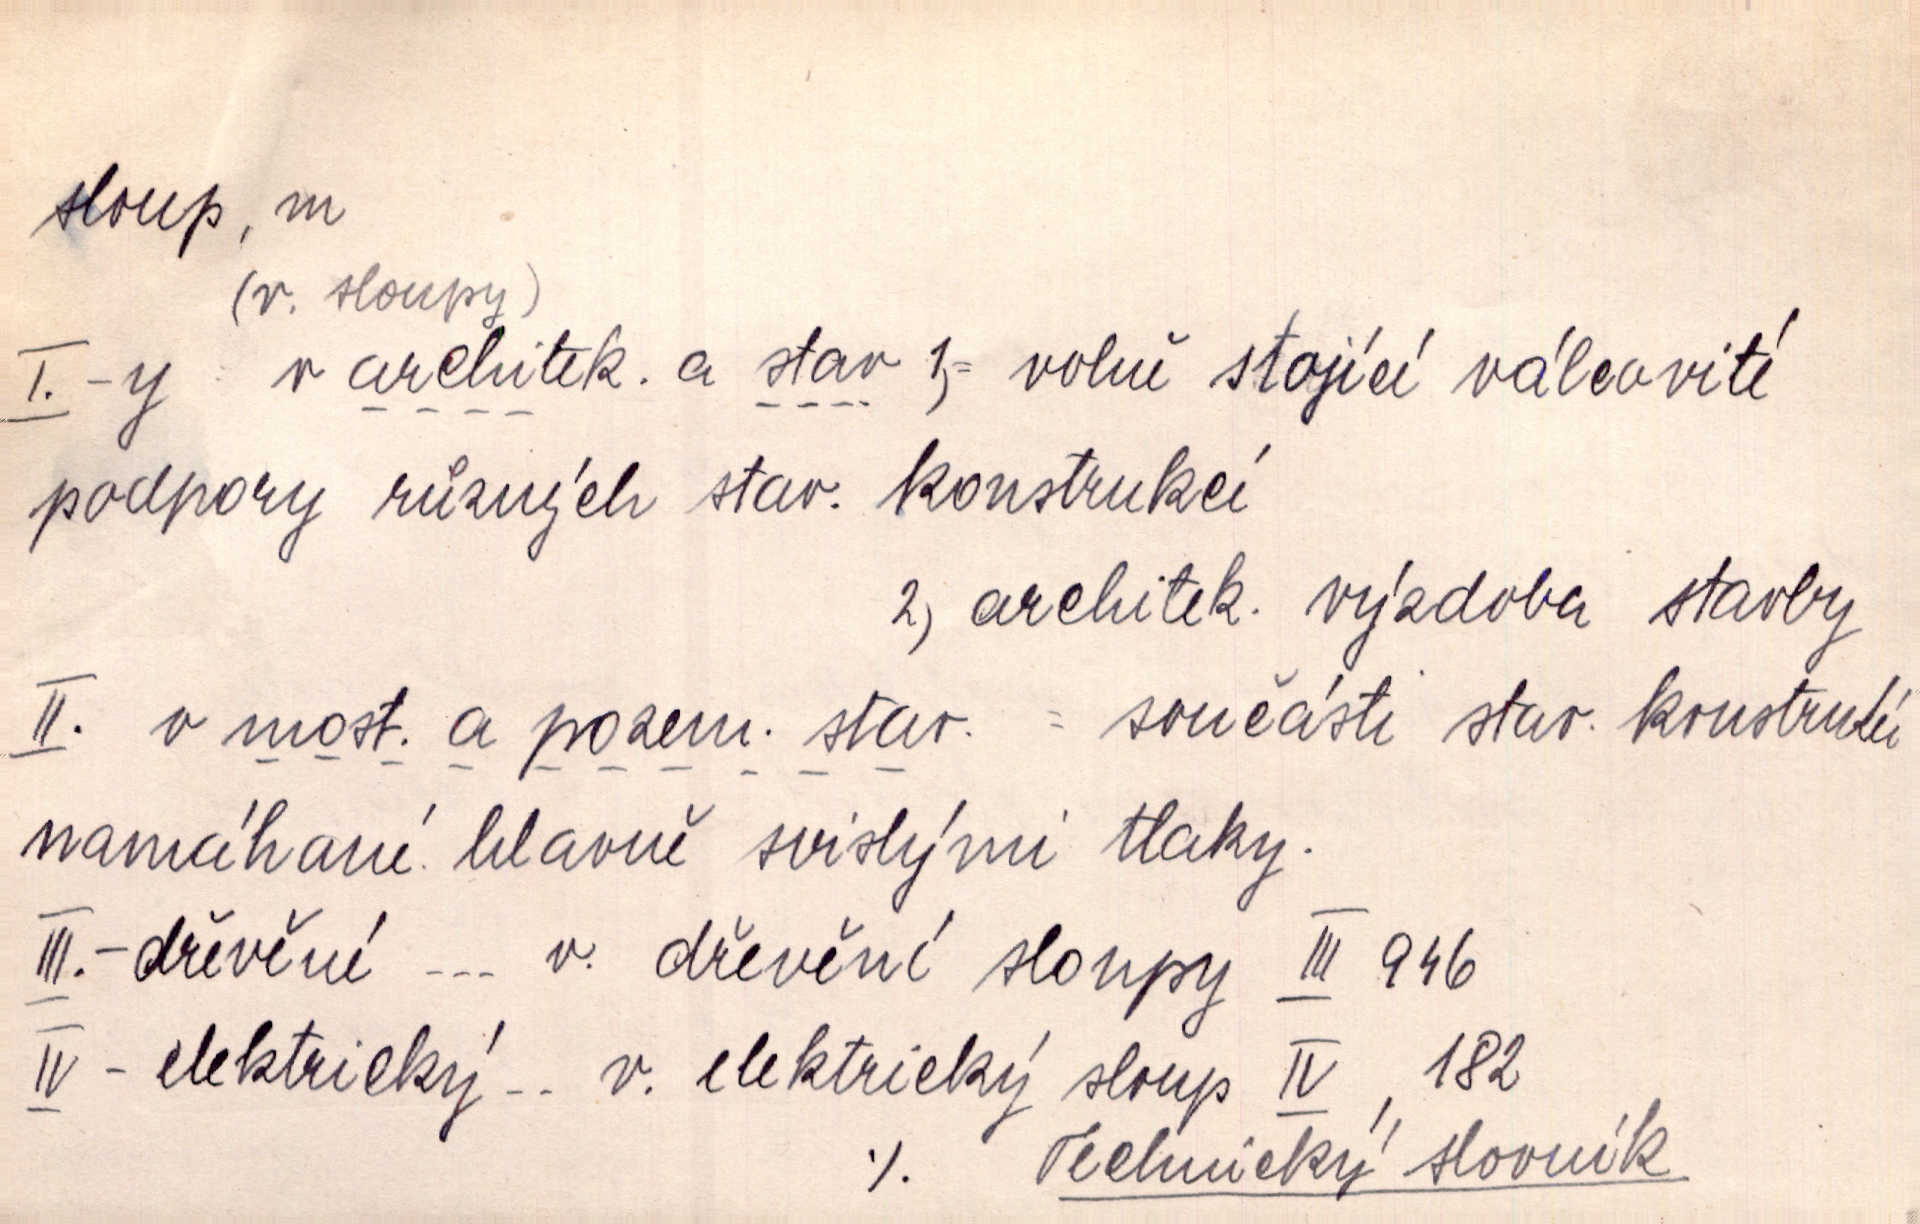 sloup, m
(v. sloupy)
I. -y v architek. a stav 1,= volně stojící válcovité
podpory různých stav. konstrukcí
2, architek. výzdoba stavby
II. v most. a pozem. stav. = součásti stav. konstrukcí
namáhané hlavně svislými tlaky.
III. - dřevěné --- v. dřevěné sloupy III 946
IV - elektrický -- v. elektrický sloup IV, 182
·/. Technický slovník